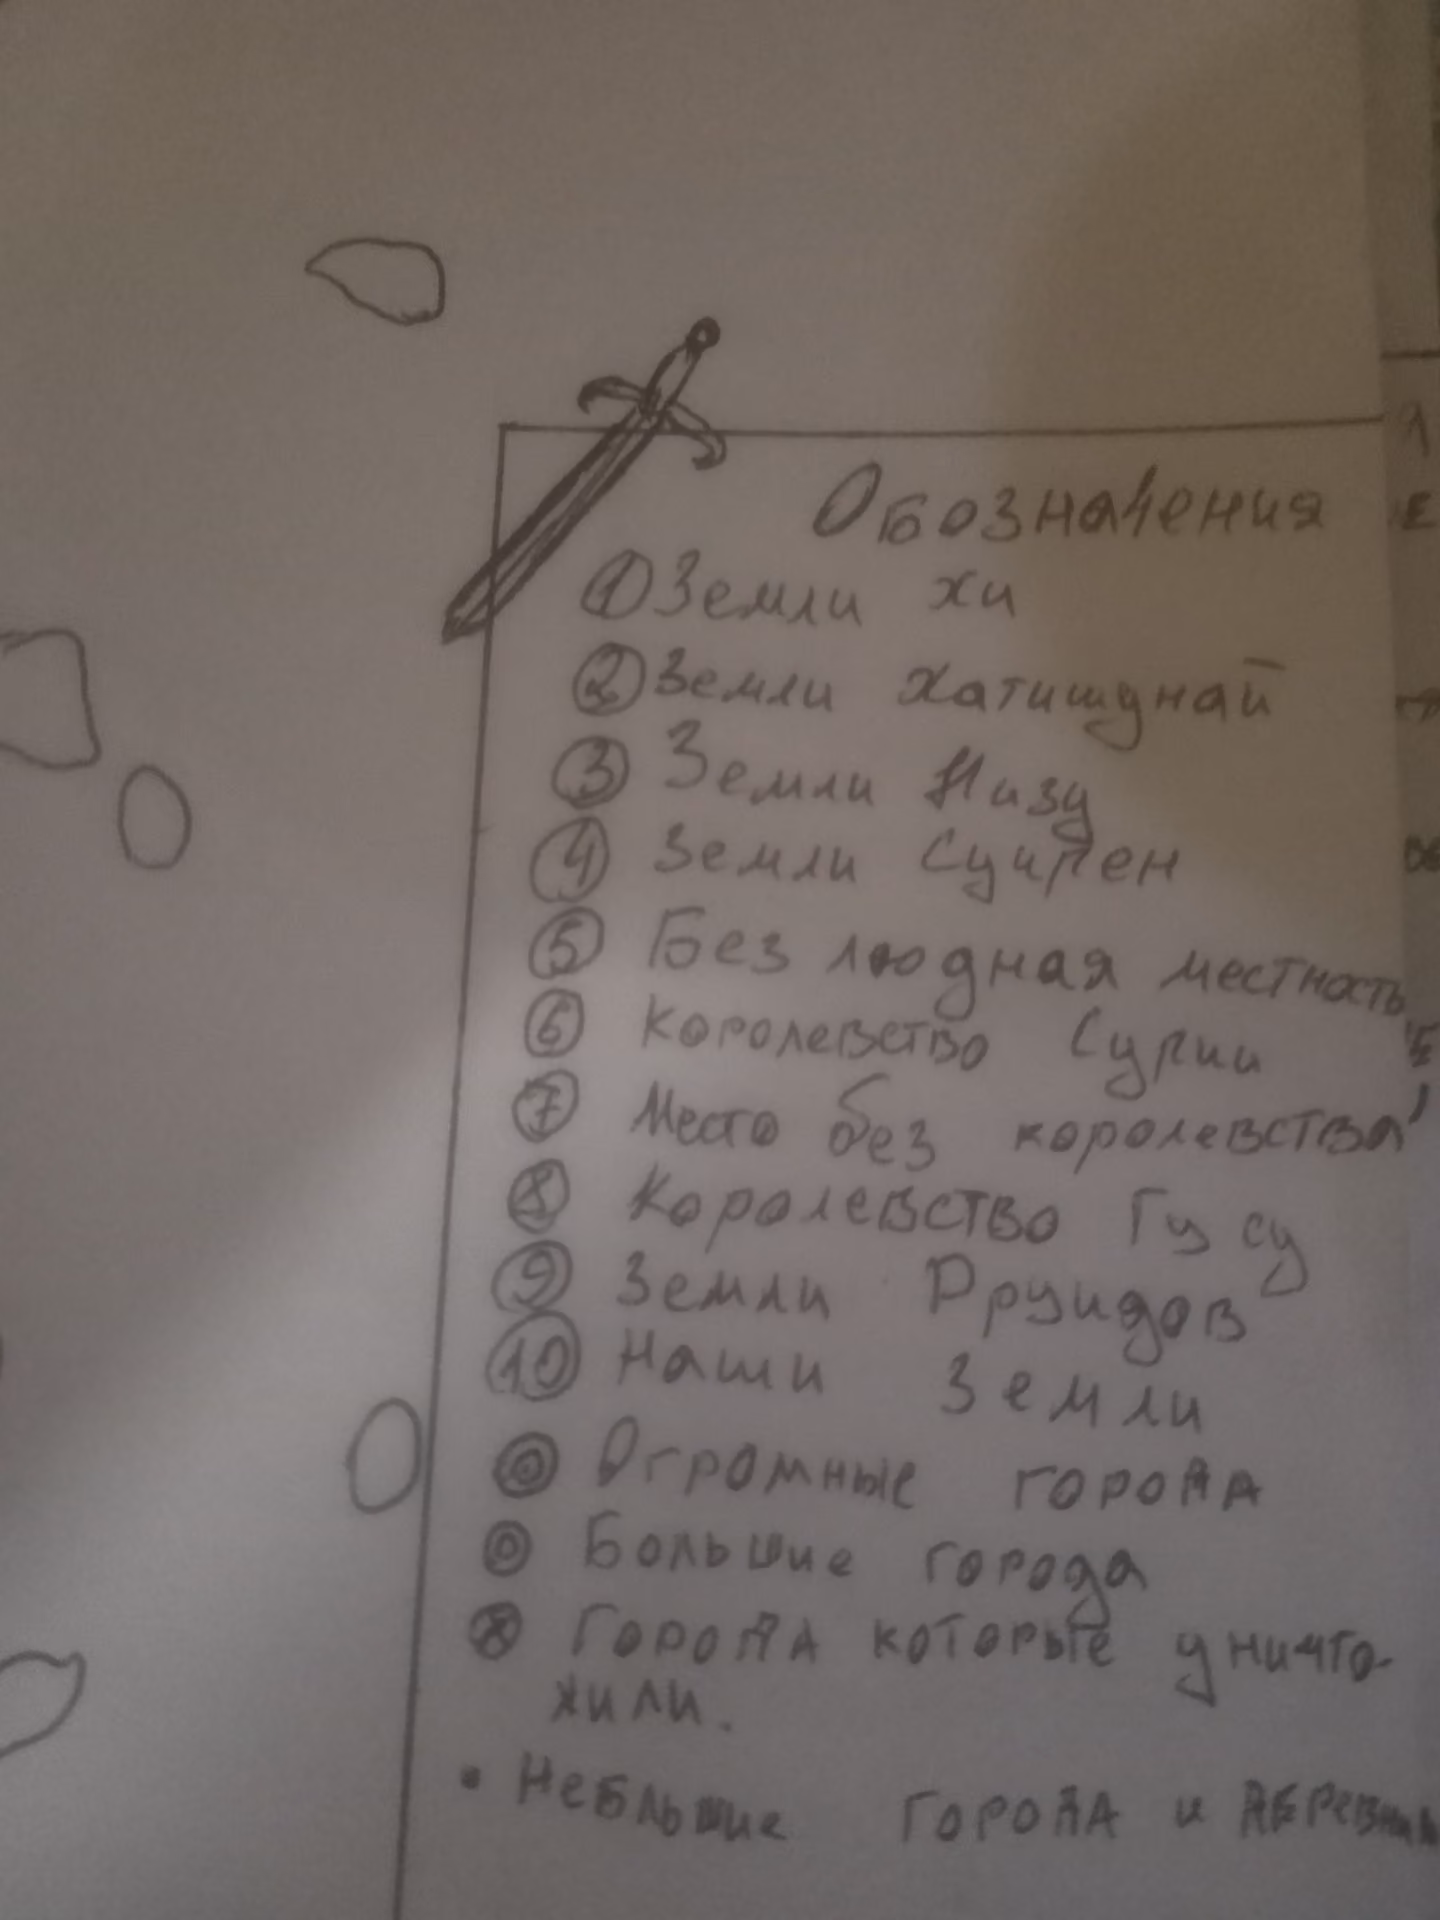 Обозначения
1 Земли хи
2 Земли Хатишунай
3 Земли Низу
4 Земли Суирен
5 Без людная местность
6 Королевство Сурии
7 Место без королевства
8 Королевство Гусу
9 Земли Друидов
10 Наши Земли
Огромные города
Большие города
Города которые уничто-
жили.
• Небльшие города и деревни